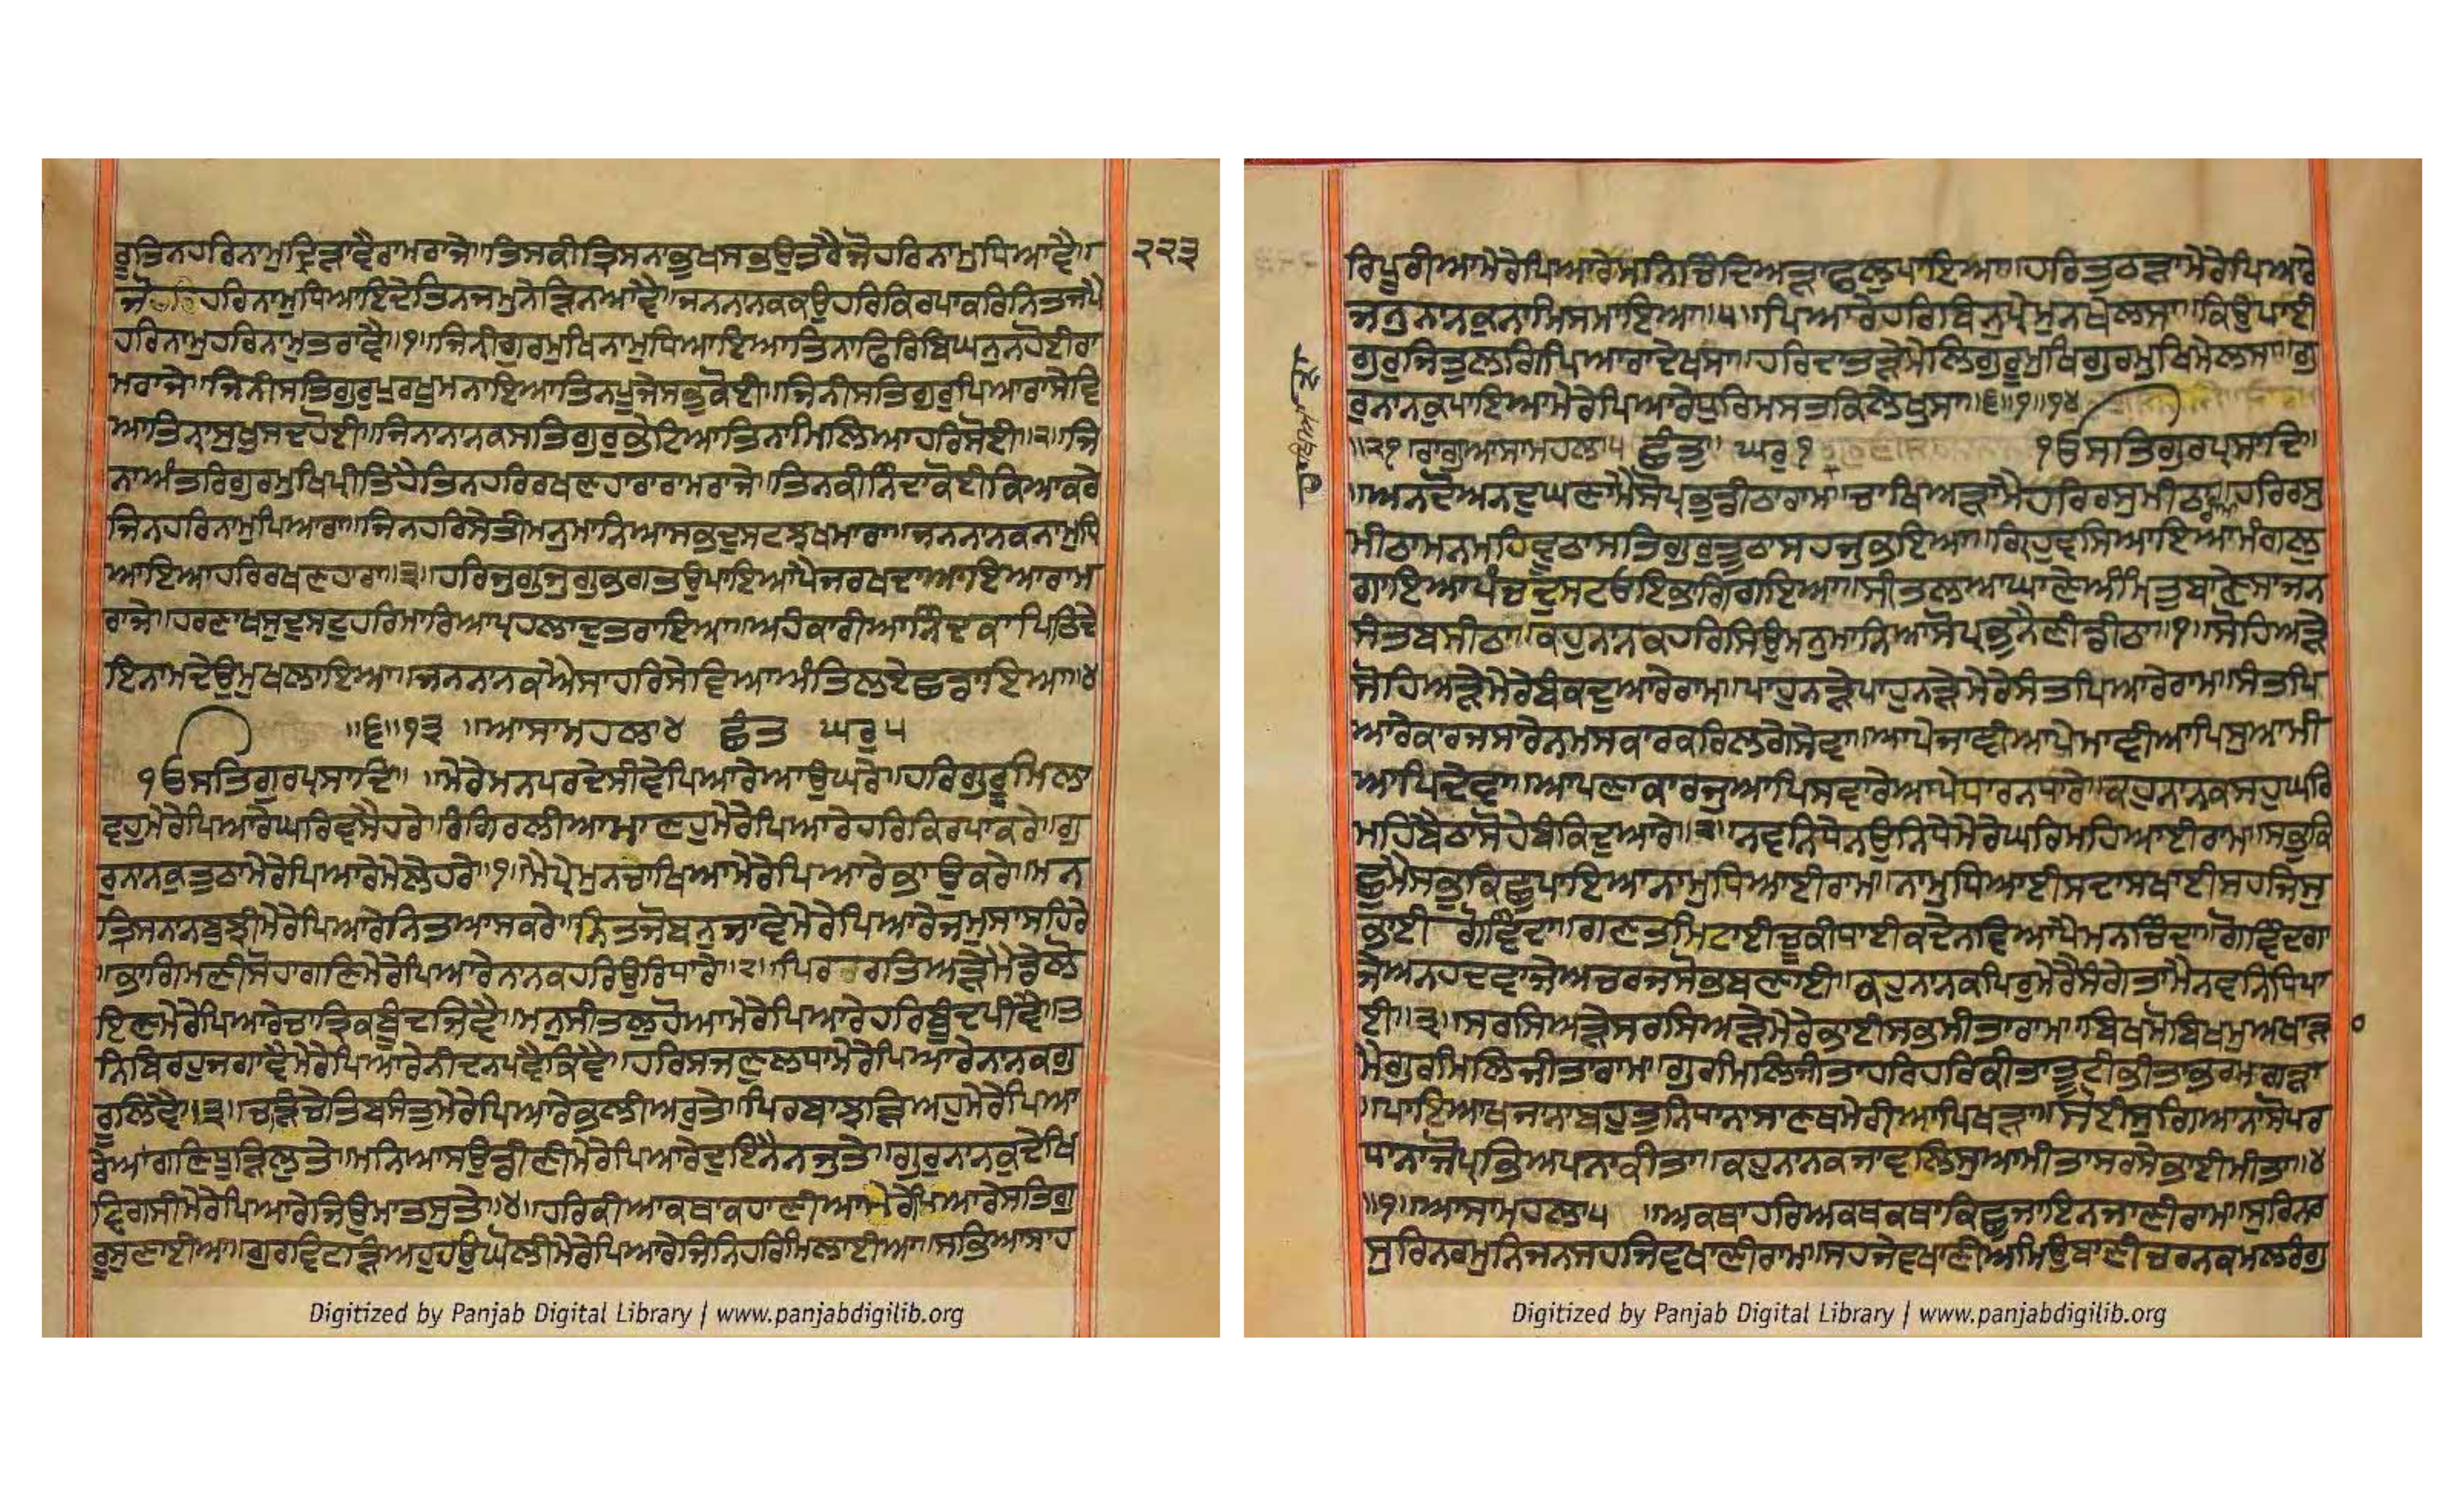 ਰੁਤਿਨਹਰਿਨਾਮੁਦ੍ਰਿੜਾਵੈਰਾਮਰਾਜੇ॥ਤਿਸਕੀਤ੍ਰਿਸਨਾਭੁਖਸਭਉਤਰੈਜੋਹਰਿਨਾਮੁਧਿਆਵੈ॥
੨੨੩
ਜੋਹਰਿਹਰਿਨਾਮੁਧਿਆਇਦੇਤਿਨਜਮੁਨੇੜਿਨਆਵੈ॥ਜਨਨਾਨਕਕਉਹਰਿਕਿਰਪਾਕਰਿਨਿਤਜਪੈ
ਹਰਿਨਾਮੁਹਰਿਨਾਮੁਤਰਾਵੈ॥੧॥ਜਿਨੀਗੁਰਮੁਖਿਨਾਮੁਧਿਆਇਆਤਿਨਾਫਿਰਿਬਿਘਨੁਨਹੋਈਰਾ
ਮਰਾਜੇ॥ਜਿਨੀਸਤਿਗੁਰੁਪੁਰਖੁਮਨਾਇਆਤਿਨਪੂਜੇਸਭੁਕੋਈ॥ਜਿਨੀਸਤਿਗੁਰੁਪਿਆਰਾਸੇਵਿ
ਆਤਿਨ੍ਹਾਸੁਖੁਸਦਹੋਈ॥ਜਿਨਾਨਾਨਕਸਤਿਗੁਰੁਭੇਟਿਆਤਿਨਾਮਿਲਿਆਹਰਿਸੋਈ॥੨॥ਜਿ
ਨਾਅੰਤਰਿਗੁਰਮੁਖਿਪ੍ਰੀਤਿਹੈਤਿਨਹਰਿਰਖਣਹਾਰਾਰਾਮਰਾਜੇ॥ਤਿਨਕੀਨਿੰਦਾਕੋਈਕਿਆਕਰੇ
ਜਿਨਹਰਿਨਾਮੁਪਿਆਰਾ॥ਜਿਨਹਰਿਸੇਤੀਮਨੁਮਾਨਿਆਸਭਦੁਸਟਝਖਮਾਰਾ॥ਜਨਨਾਨਕਨਾਮੁਧਿ
ਆਇਆਹਰਿਰਖਣਹਾਰਾ॥੩॥ਹਰਿਜੁਗੁਜੁਗੁਭਗਤਉਪਾਇਆਪੈਜਰਖਦਾਆਇਆਰਾਮ
ਰਾਜੇ॥ਹਰਣਾਖਸੁਦੁਸਟੁਹਰਿਮਾਰਿਆਪ੍ਰਹਲਾਦੁਤਰਾਇਆ॥ਅਹੰਕਾਰੀਆਨਿੰਦਕਾਪਿਠਿਦੇ
ਇਨਾਮਦੇਉਮੁਖਲਾਇਆ॥ਜਨਨਾਨਕਐਸਾਹਰਿਸੇਵਿਆਅੰਤਿਲਏਛਡਾਇਆ॥੪
॥੬॥੧੩ ॥ਆਸਾਮਹਲਾ੪ ਛੰਤ ਘਰੁ੫
ੴਸਤਿਗੁਰਪ੍ਰਸਾਦਿ॥ ॥ਮੇਰੇਮਨਪਰਦੇਸੀਵੇਪਿਆਰੇਆਉਘਰੇ॥ਹਰਿਗੁਰੂਮਿਲਾ
ਵਹੁਮੇਰੇਪਿਆਰੇਘਰਿਵਸੈਹਰੇ॥ਰੰਗਿਰਲੀਆਮਾਣਹੁਮੇਰੇਪਿਆਰੇਹਰਿਕਿਰਪਾਕਰੇ॥ਗੁ
ਰੁਨਾਨਕੁਤੁਠਾਮੇਰੇਪਿਆਰੇਮੇਲੇਹਰੇ॥੧॥ਮੈਪ੍ਰੇਮੁਨਚਾਖਿਆਮੇਰੇਪਿਆਰੇਭਾਉਕਰੇ॥ਮਨ
ਤ੍ਰਿਸਨਾਨਬੁਝੀਮੇਰੇਪਿਆਰੇਨਿਤਆਸਕਰੇ॥ਨਿਤਜੋਬਨੁਜਾਵੈਮੇਰੇਪਿਆਰੇਜਮੁਸਾਸਹਿਰੇ
॥ਭਾਗਮਣੀਸੋਹਾਗਣਿਮੇਰੇਪਿਆਰੇਨਾਨਕਹਰਿਉਰਿਧਾਰੇ॥੨॥ਪਿਰਰਤਿਅੜੇਮੈਡੇਲੋ
ਇਣਮੇਰੇਪਿਆਰੇਚਾਤ੍ਰਿਕਬੂੰਦਜਿਵੈ॥ਮਨੁਸੀਤਲੁਹੋਆਮੇਰੇਪਿਆਰੇਹਰਿਬੂੰਦਪੀਵੈ॥ਤ
ਨਿਬਿਰਹੁਜਗਾਵੈਮੇਰੇਪਿਆਰੇਨੀਦਨਪਵੈਕਿਵੈ॥ਹਰਿਸਜਣੁਲਧਾਮੇਰੇਪਿਆਰੇਨਾਨਕਗੁ
ਰੂਲਿਵੈ॥੩॥ਚੜਿਚੇਤਿਬਸੰਤੁਮੇਰੇਪਿਆਰੇਭਲੀਅਰੁਤੇ॥ਪਿਰਬਾਝੜਿਅਹੁਮੇਰੇਪਿਆ
ਰੇਆਂਗਣਿਧੂੜਿਲੁਤੇ॥ਮਨਿਆਸਉਡੀਣੀਮੇਰੇਪਿਆਰੇਦੁਇਨੈਨਜੁਤੇ॥ਗੁਰੁਨਾਨਕੁਦੇਖਿ
ਵਿਗਸੀਮੇਰੇਪਿਆਰੇਜਿਉਮਾਤਸੁਤੇ॥੪॥ਹਰਿਕੀਆਕਥਾਕਹਾਣੀਆਮੇਰੇਪਿਆਰੇਸਤਿਗੁ
ਰੂਸੁਣਾਈਆ॥ਗੁਰਵਿਟੜਿਅਹੁਹਉਘੋਲੀਮੇਰੇਪਿਆਰੇਜਿਨਿਹਰਿਮਿਲਾਈਆ॥ਸਭਿਆਸਾਹ
Digitized by Panjab Digital Library | www.panjabdigilib.org
ਰਿਪੂਰੀਆਮੇਰੇਪਿਆਰੇਮਨਿਚਿੰਦਿਅੜਾਫਲੁਪਾਇਆ॥ਹਰਿਤੁਠੜਾਮੇਰੇਪਿਆਰੇ
ਜਨੁਨਾਨਕੁਨਾਮਿਸਮਾਇਆ॥੫॥ਪਿਆਰੇਹਰਿਬਿਨੁਪ੍ਰੇਮੁਨਖੇਲਸਾ॥ਕਿਉਪਾਈ
ਗੁਰੁਜਿਤੁਲਗਿਪਿਆਰਾਦੇਖਸਾ॥ਹਰਿਦਾਤੜੇਮੇਲਿਗੁਰੂਮੁਖਿਗੁਰਮੁਖਿਮੇਲਸਾ॥ਗੁ
ਰੁਨਾਨਕੁਪਾਇਆਮੇਰੇਪਿਆਰੇਧੁਰਿਮਸਤਕਿਲੇਖੁਸਾ॥੬॥੧॥੧੪
॥੨੧॥ਰਾਗੁਆਸਾਮਹਲਾ੫ ਛੰਤਾ ਘਰੁ੧ ੴਸਤਿਗੁਰਪ੍ਰਸਾਦਿ॥
॥ਅਨਦੋਅਨਦੁਘਣਾਮੈਸੋਪ੍ਰਭੁਡੀਠਾਰਾਮ॥ਚਾਖਿਅੜਾਮੈਹਰਿਰਸੁਮੀਠਾਹਰਿਰਸੁ
ਮੀਠਾਮਨਮਹਿਵੂਠਾਸਤਿਗੁਰੁਤੂਠਾਸਹਜੁਭਇਆ॥ਗ੍ਰਿਹੁਵਸਿਆਇਆਮੰਗਲੁ
ਗਾਇਆਪੰਚਦੁਸਟਓਇਭਾਗਿਗਇਆ॥ਸੀਤਲਆਘਾਣੇਅੰਮ੍ਰਿਤਬਾਣੇਸਾਜਨ
ਸੰਤਬਸੀਠਾ॥ਕਹੁਨਾਨਕਹਰਿਸਿਉਮਨੁਮਾਨਿਆਸੋਪ੍ਰਭੁਨੈਣੀਡੀਠਾ॥੧॥ਸੋਹਿਅੜੇ
ਸੋਹਿਅੜੇਮੇਰੇਬੰਕਦੁਆਰੇਰਾਮ॥ਪਾਹੁਨੜੇਪਾਹੁਨੜੇਮੇਰੇਸੰਤਪਿਆਰੇਰਾਮ॥ਸੰਤਪਿ
ਆਰੇਕਾਰਜਸਾਰੇਨਮਸਕਾਰਕਰਿਲਗੇਸੇਵਾ॥ਆਪੇਜਾਞੀਆਪੇਮਾਞੀਆਪਿਸੁਆਮੀ
ਆਪਿਦੇਵਾ॥ਆਪਣਾਕਾਰਜੁਆਪਿਸਵਾਰੇਆਪੇਧਾਰਨਧਾਰੇ॥ਕਹੁਨਾਨਕਸਹੁਘਰਿ
ਮਹਿਬੈਠਾਸੋਹੇਬੰਕਿਦੁਆਰੇ॥੨॥ਨਵਨਿਧੇਨਉਨਿਧੇਮੇਰੇਘਰਿਮਹਿਆਈਰਾਮ॥ਸਭੁਕਿ
ਛੁਮੈਸਭੁਕਿਛੁਪਾਇਆਨਾਮੁਧਿਆਈਰਾਮ॥ਨਾਮੁਧਿਆਈਸਦਾਸਖਾਈਸਹਜਿਸੁ
ਭਾਈ ਗੋਵਿੰਦਾ॥ਗਣਤਮਿਟਾਈਚੂਕੀਧਾਈਕਦੇਨਵਿਆਪੈਮਨਚਿੰਦਾ॥ਗੋਵਿੰਦਗਾ
ਜੇਅਨਹਦਵਾਜੇਅਚਰਜਸੋਭਬਣਾਈ॥ਕਹੁਨਾਨਕਪਿਰੁਮੇਰੈਸੰਗੇਤਾਮੈਨਵਨਿਧਿਪਾ
ਈ॥੩॥ਸਰਸਿਅੜੇਸਰਸਿਅੜੇਮੇਰੇਭਾਈਸਭਮੀਤਾਰਾਮ॥ਬਿਖਮੋਬਿਖਮੁਅਖਾੜਾ
ਮੈਗੁਰਮਿਲਿਜੀਤਾਰਾਮ॥ਗੁਰਮਿਲਿਜੀਤਾਹਰਿਹਰਿਕੀਤਾਤੂਟੀਭੀਤਾਭਰਮਗੜਾ
॥ਪਾਇਆਖਜਾਨਾਬਹੁਤੁਨਿਧਾਨਾਸਾਣਥਮੇਰੀਆਪਿਖੜਾ॥ਸੋਈਸੁਗਿਆਨਾਸੋਪਰ
ਧਾਨਾਜੋਪ੍ਰਭਿਅਪਨਾਕੀਤਾ॥ਕਹੁਨਾਨਕਜਾਂਵਲਿਸੁਆਮੀਤਾਸਰਸੇਭਾਈਮੀਤਾ॥੪
॥੧॥ਆਸਾਮਹਲਾ੫ ॥ਅਕਥਾਹਰਿਅਕਥਕਥਾਕਿਛੁਜਾਇਨਜਾਣੀਰਾਮ॥ਸੁਰਿਨਰ
ਸੁਰਿਨਰਮੁਨਿਜਨਸਹਜਿਵਖਾਣੀਰਾਮ॥ਸਹਜੇਵਖਾਣੀਅਮਿਉਬਾਣੀਚਰਨਕਮਲਰੰਗੁ
Digitized by Panjab Digital Library | www.panjabdigilib.org